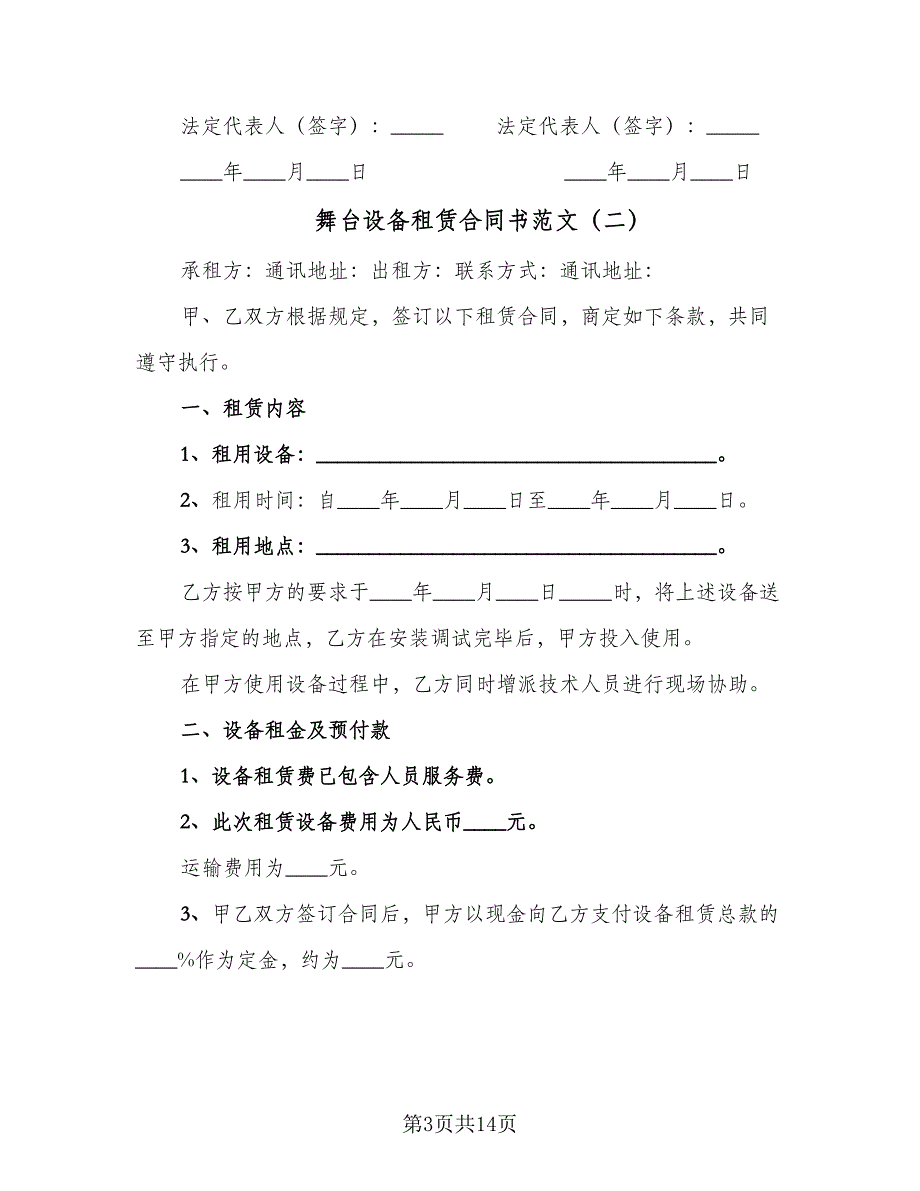 法定代表人（签字）：_____ 法定代表人（签字）：_____
____年____月____日 ____年____月____日
舞台设备租赁合同书范文（二）
承租方：通讯地址：出租方：联系方式：通讯地址：
甲、乙双方根据规定，签订以下租赁合同，商定如下条款，共同
遵守执行。
一、租赁内容
1、租用设备：______________________________________。
2、租用时间：自____年____月____日至____年____月____日。
3、租用地点：______________________________________。
乙方按甲方的要求于____年____月____日_____时，将上述设备送
至甲方指定的地点，乙方在安装调试完毕后，甲方投入使用。
在甲方使用设备过程中，乙方同时增派技术人员进行现场协助。
二、设备租金及预付款
1、设备租赁费已包含人员服务费。
2、此次租赁设备费用为人民币____元。
运输费用为____元。
3、甲乙双方签订合同后，甲方以现金向乙方支付设备租赁总款的
____%作为定金，约为____元。
第3页共14页